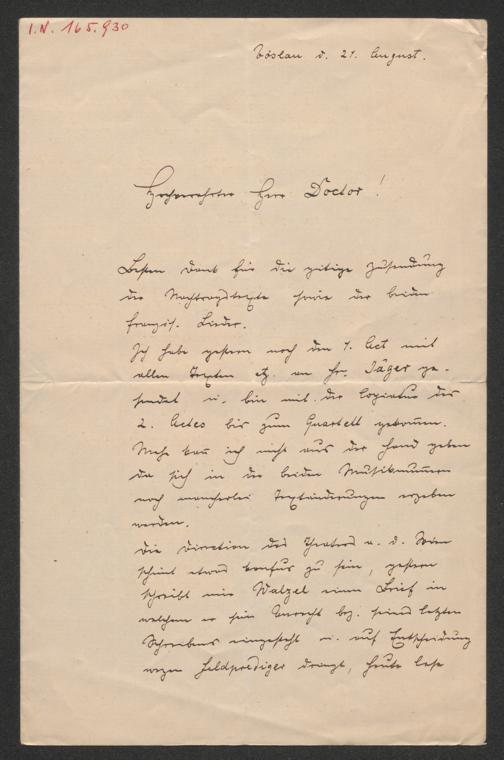 I.N. 165.930
Vöslau d. 21. August.
Hochverehrter Herr Doctor!
Besten Dank für die gütige Zusendung
der Nachtragstexte sowie der beiden
französ. Lieder.
Ich habe gestern noch den 1. Act mit
allen Texten etz. an Hr. Jäger ge-
sendet u. bin mit der Copiatur des
2. Actes bis zum Quartett gekommen.
Mehr kan ich nicht aus der Hand geben
da sich in den beiden Musiknummern
noch mancherlei Textänderungen ergeben
werden.
Die Direction des Theaters a. d. Wien
scheint etwas konfus zu sein, gestern
schreibt mir Walzel einen Brief in
welchem er sein Unrecht bez. seines letzten
Schreibens eingesteht u. auf Entscheidung
wegen Feldprediger drängt, heute lese